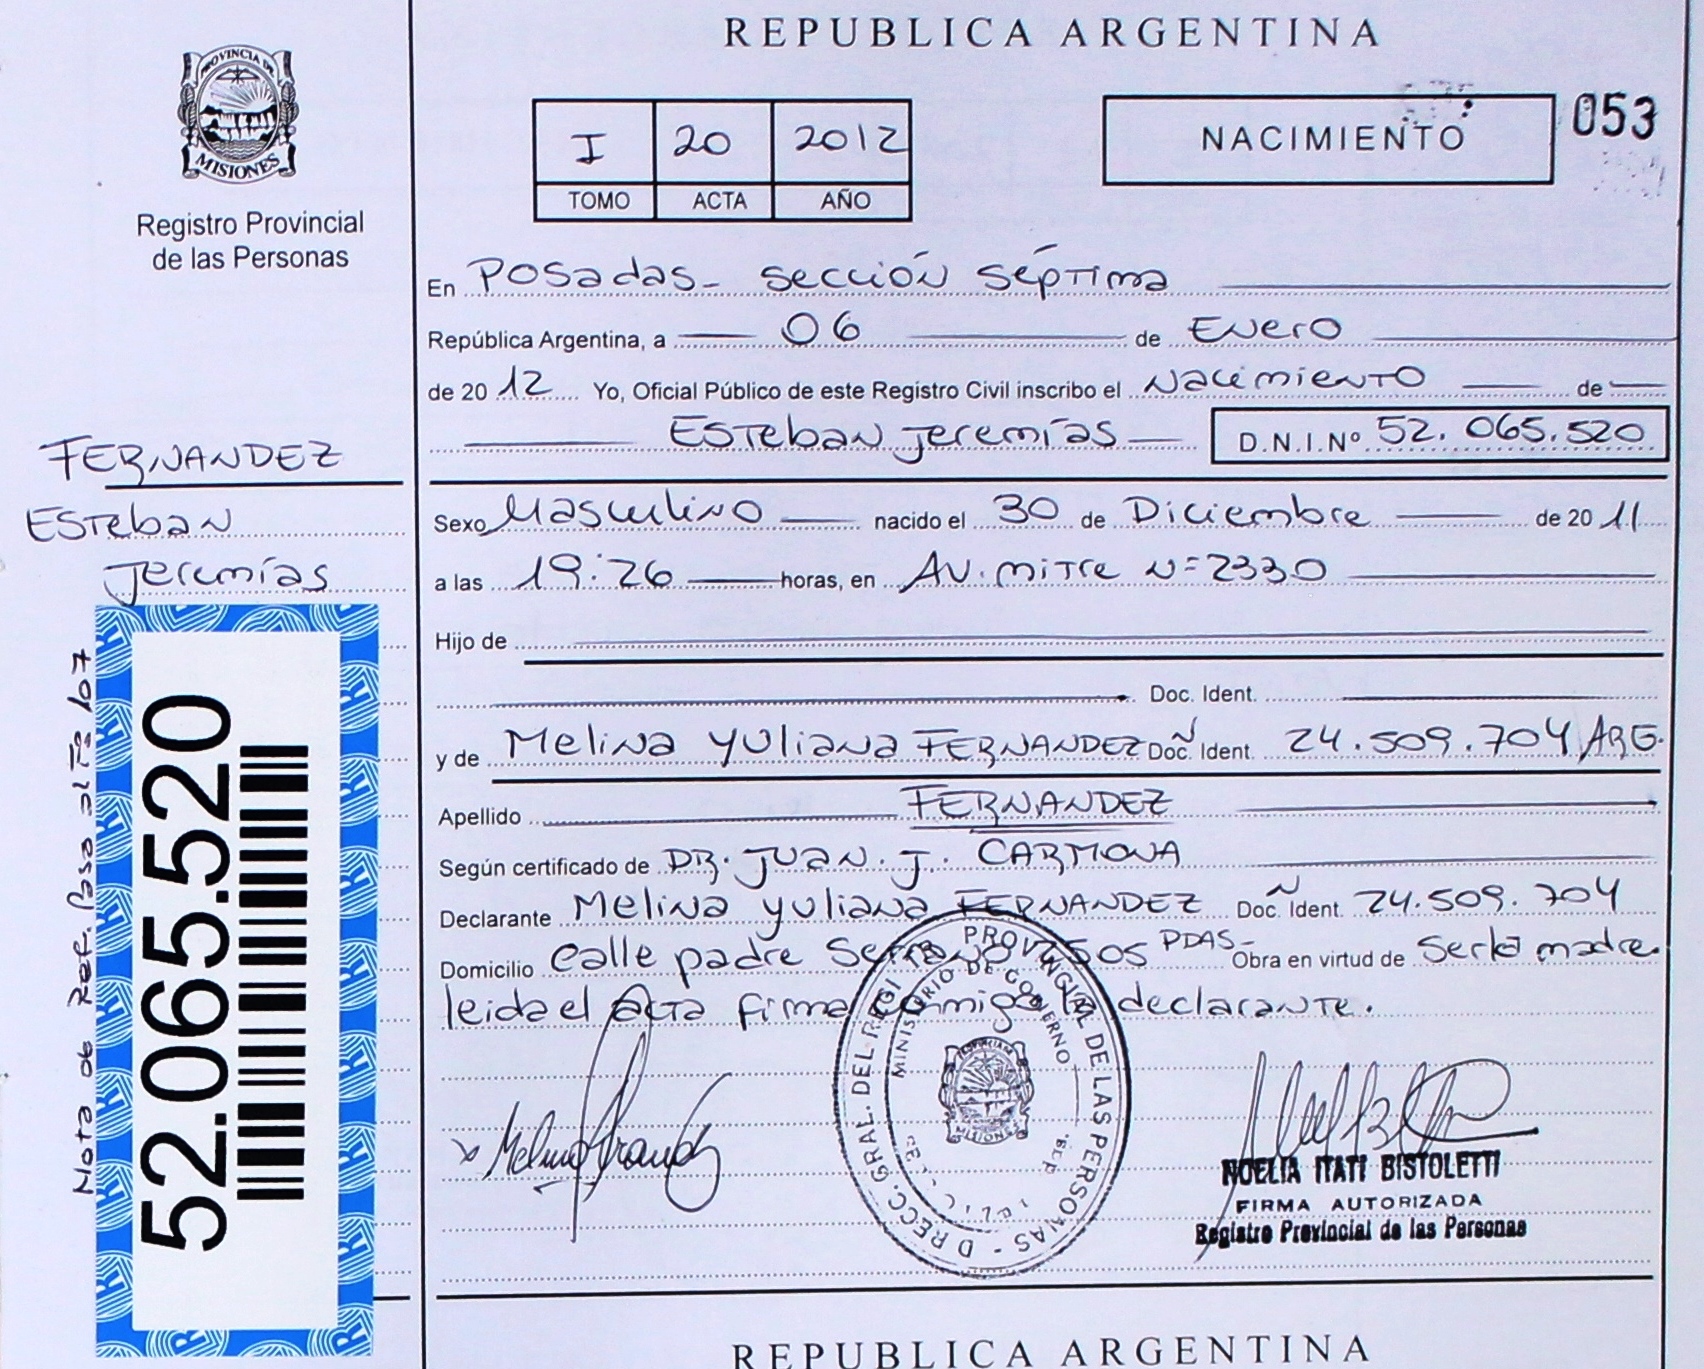 PROVINCIA DE
MISIONES
Registro Provincial
de las Personas
FERNANDEZ
Esteban
Jeremías
52.065.520
Nota de Ref. Pasa al Fº 107
REPUBLICA ARGENTINA
I 20 2012
TOMO ACTA AÑO
NACIMIENTO 053
En Posadas - sección séptima
República Argentina, a 06 de Enero
de 2012 Yo, Oficial Público de este Registro Civil inscribo el Nacimiento de
Esteban Jeremías D.N.I.Nº 52.065.520
Sexo Masculino nacido el 30 de Diciembre de 2011
a las 19:26 horas, en AV. mitre N=2330
Hijo de
Doc. Ident.
y de Melina Yuliana FERNANDEZ Doc. Ident. 24.509.704 ARG.
Apellido FERNANDEZ
Según certificado de DR. JUAN. J. CARMONA
Declarante Melina Yuliana FERNANDEZ Doc. Ident. 24.509.704
Domicilio calle padre Serrano PDAS- Obra en virtud de ser la madre.
leida el acta firma conmigo la declarante.
DIRECC. GRAL. DEL REGI PROVINCIAL DE LAS PERSONAS -
MINISTERIO DE GOBIERNO
MISIONES
NOELIA ITATI BISTOLETTI
FIRMA AUTORIZADA
Registro Provincial de las Personas
REPUBLICA ARGENTINA